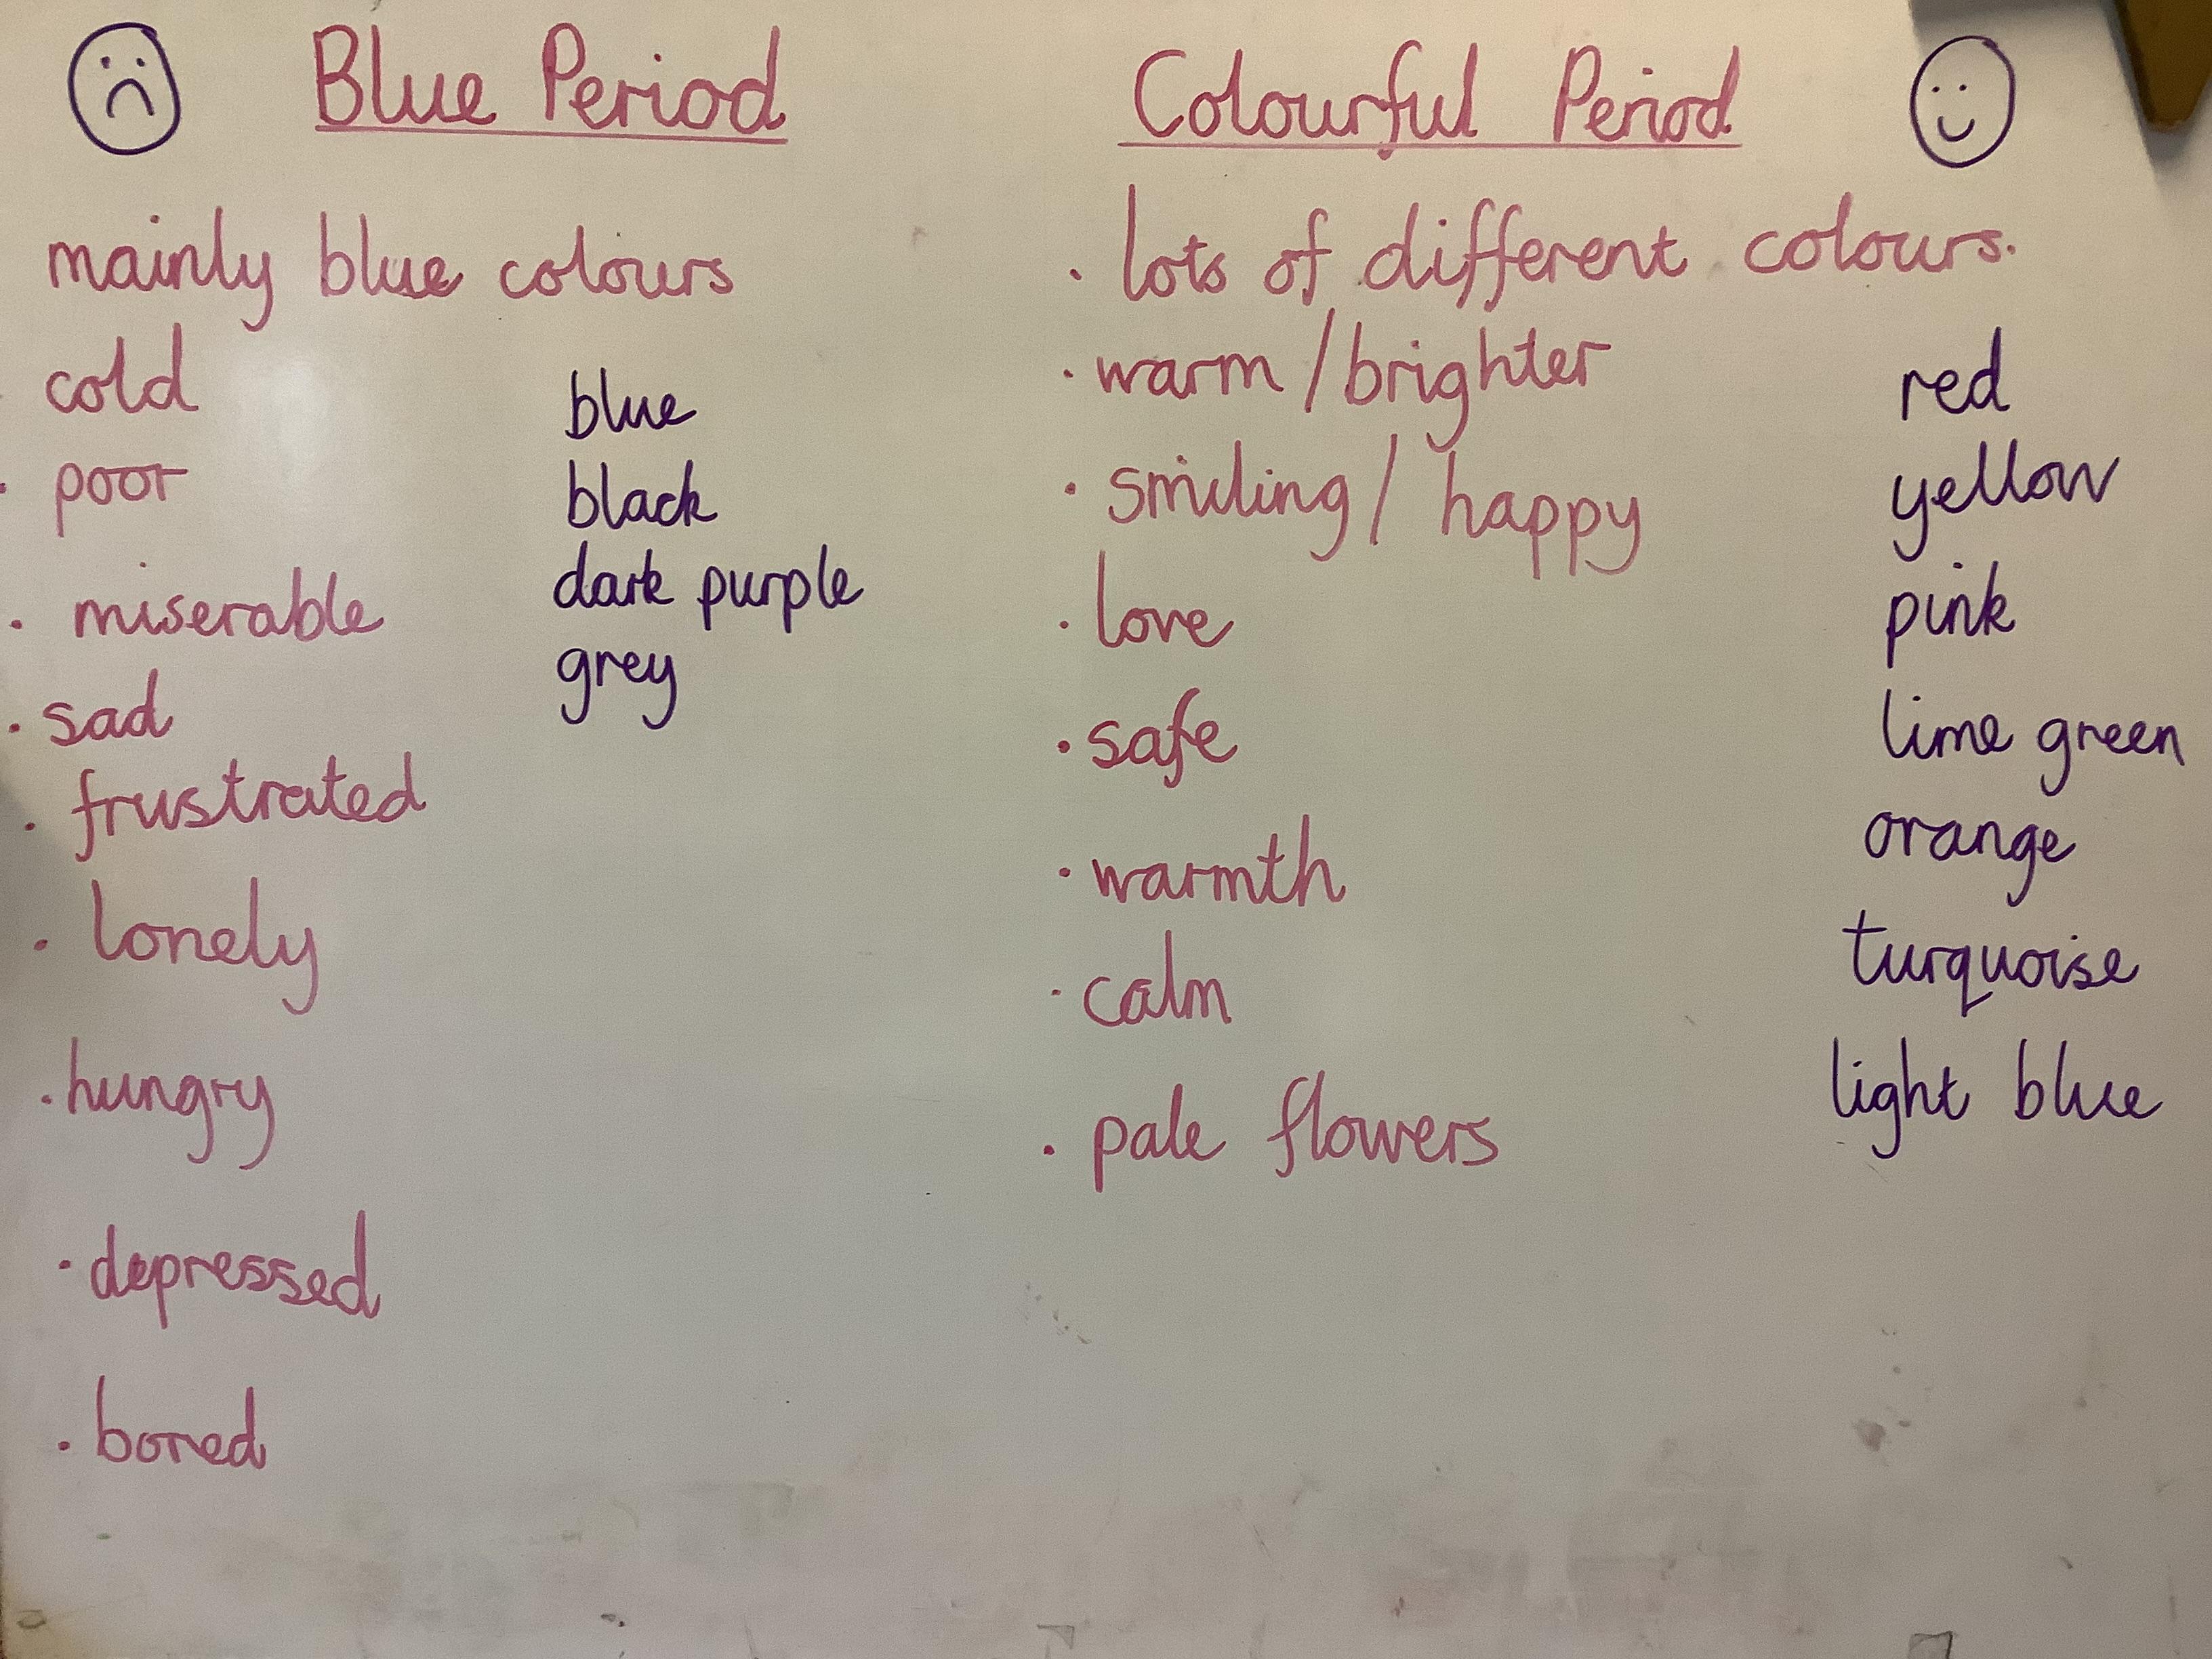 Blue Period
mainly blue colours
cold
· poor
· miserable
· sad
· frustrated
· lonely
· hungry
· depressed
· bored
blue
black
dark purple
grey
Colourful Period
· lots of different colours.
· warm / brighter
· smiling / happy
· love
· safe
· warmth
· calm
· pale flowers
red
yellow
pink
lime green
orange
turquoise
light blue